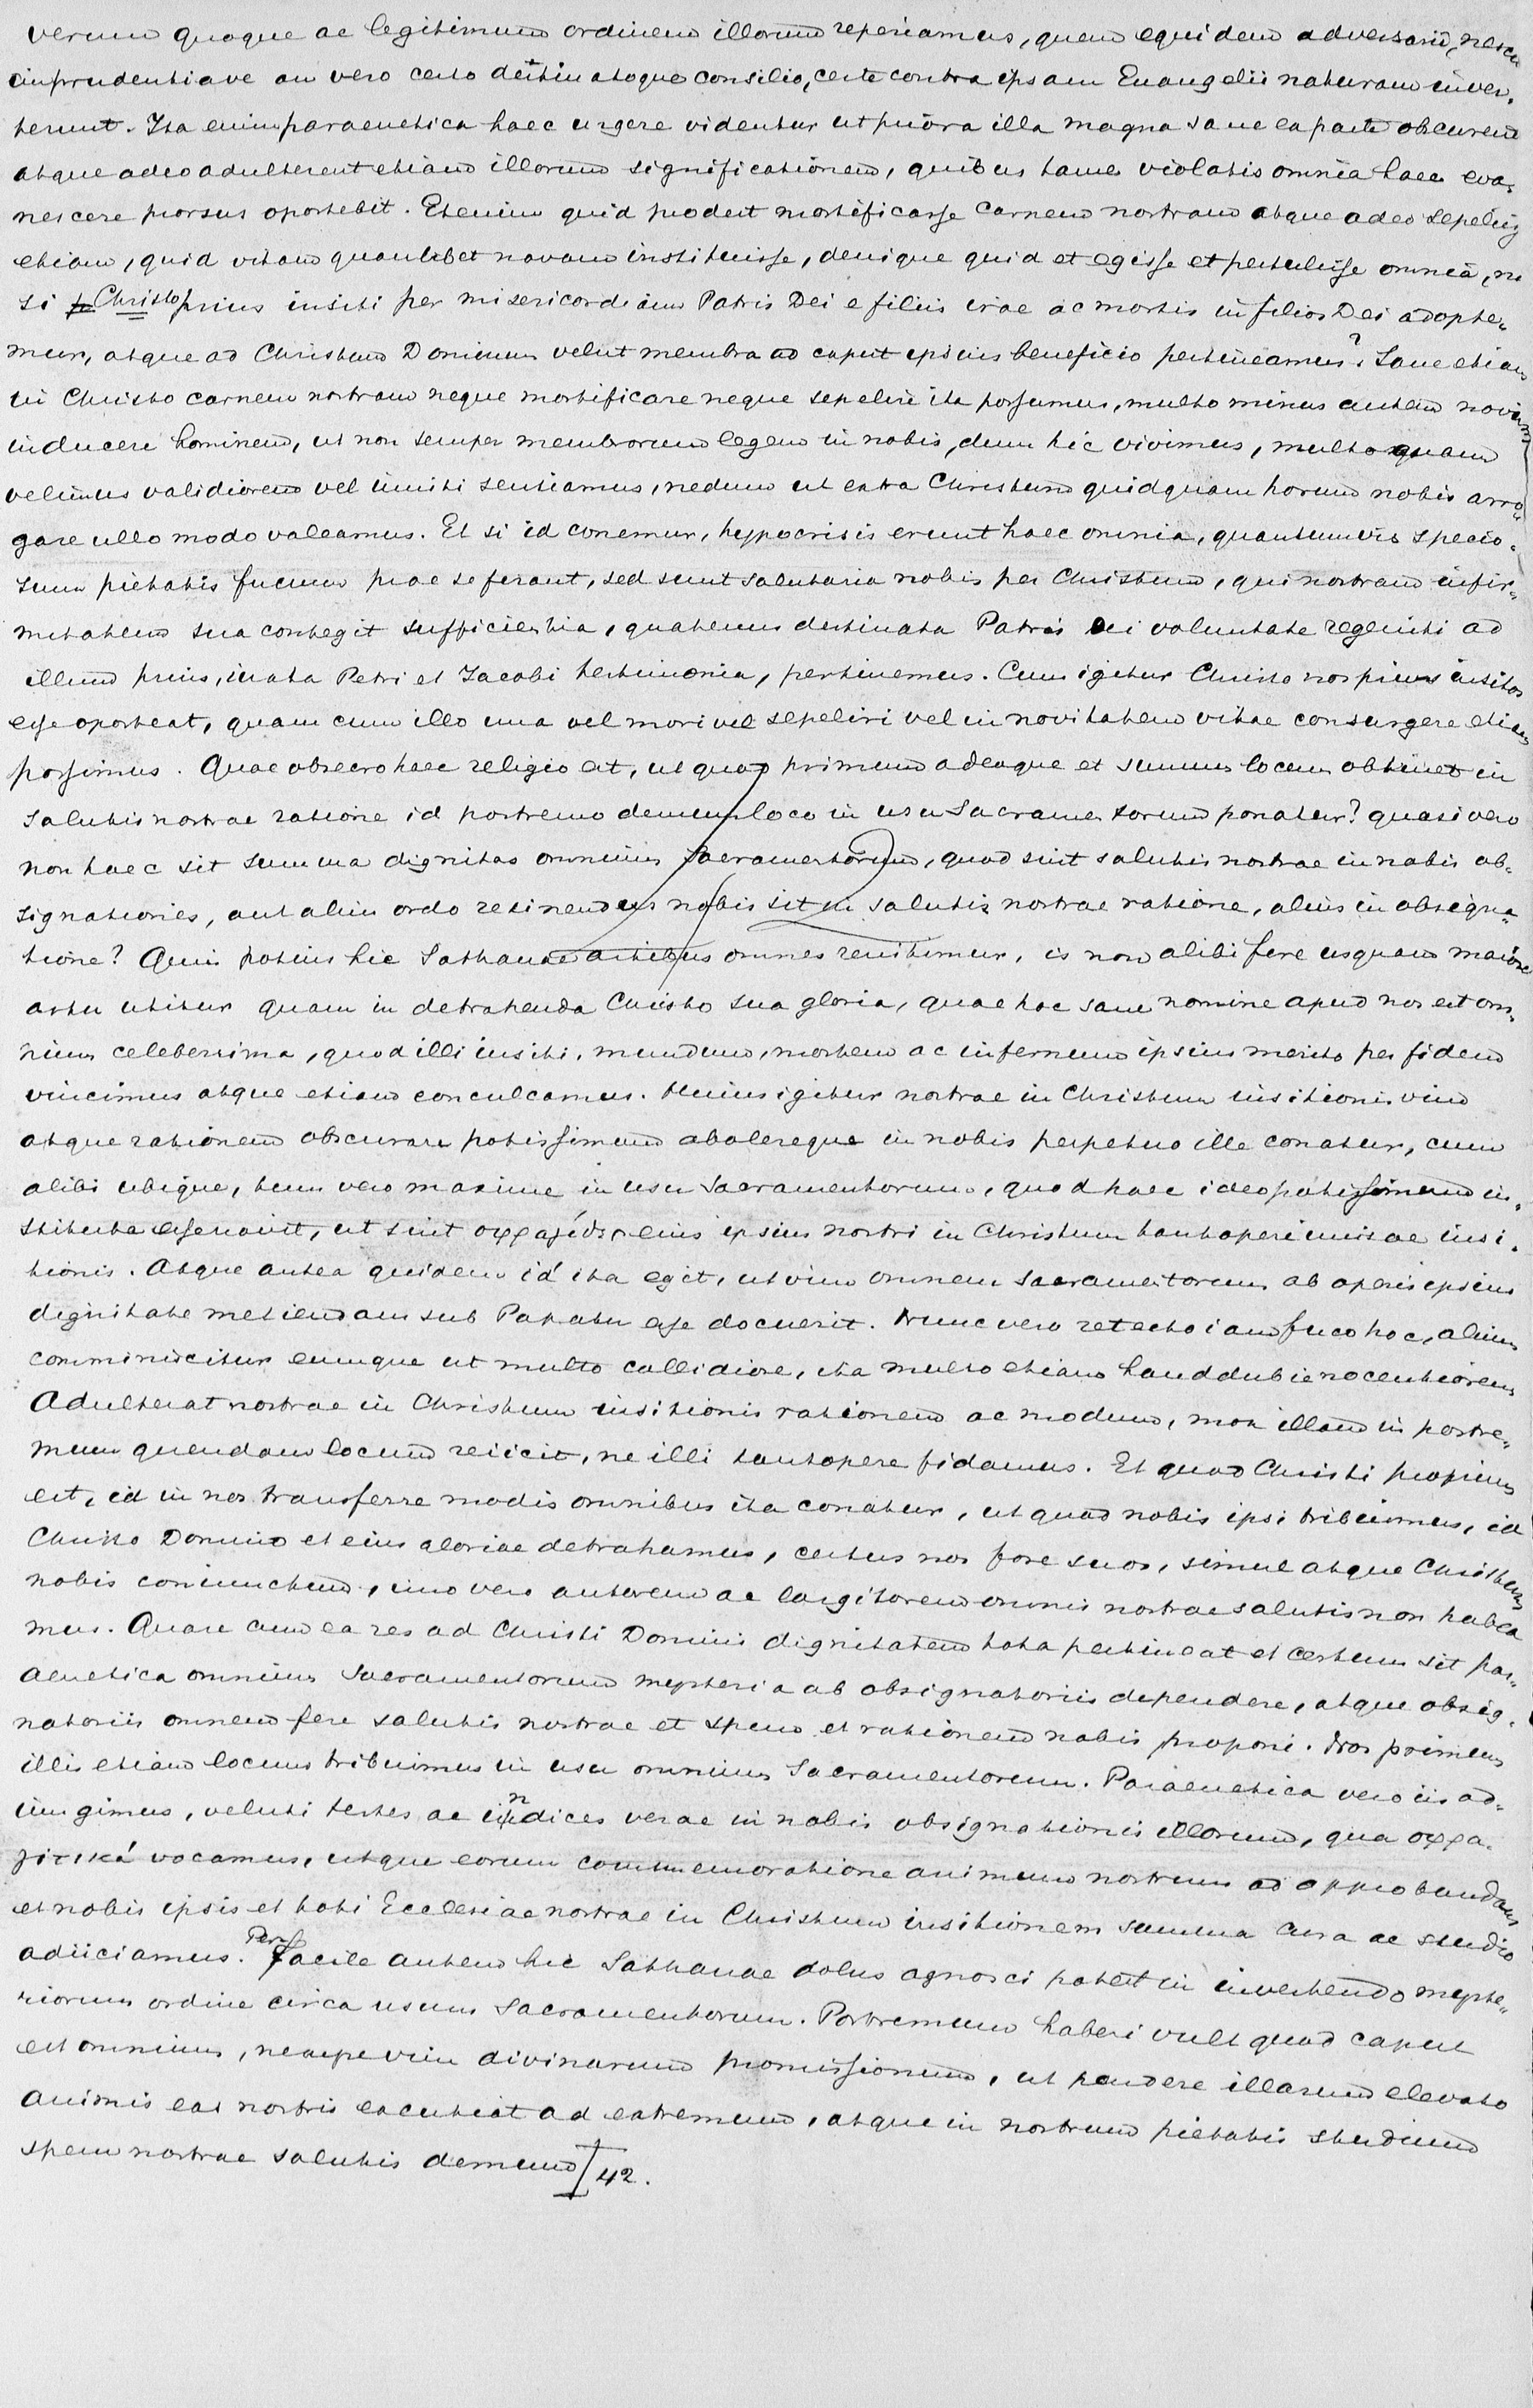 verum quoque ac legitimum ordinem illorum reperiamus, quem equidem adversarii, nescio
imprudentiave an vero certo destinatoque consilio, certe contra ipsam Euangelii naturam inver-
terunt. Ita enim paraenetica haec urgere videntur ut priora illa magna sane ea parte obscurent
atque adeo adulterent etiam illorum significationem, quibus tamen violatis omnia haec eva-
nescere prorsus oportebit. Etenim quid prodest mortificasse carnem nostram atque adeo sepeliisse
etiam, quid vitam quamlibet novam instituisse, denique quid et egisse et pertulisse omnia, ni
si Christo prius insiti per misericordiam Patris Dei e filiis irae ac mortis in filios Dei adopte-
mur, atque ad Christum Dominum velut membra ad caput ipsius beneficio pertineamus? Sane etiam
in Christo carnem nostram neque mortificare neque sepelire ita possumus, multo minus autem novum
inducere hominem, ut non semper membrorum legem in nobis, dum hic vivimus, multo quam
velimus validiorem vel inviti sentiamus, nedum ut extra Christum quidquam horum nobis arro-
gare ullo modo valeamus. Et si id conemur, hypocrisis erunt haec omnia, quantumvis specio-
sum pietatis fucum prae se ferant, sed sunt salutaria nobis per Christum, qui nostram infir-
mitatem sua contegit sufficientia, quatenus destinata Patris Dei voluntate regeniti ad
illum prius, iuxta Petri et Jacobi testimonia, pertinemus. Cum igitur Christo nos prius insitos
esse oporteat, quam cum illo una vel mori vel sepeliri vel in novitatem vitae consurgere etiam
possimus. Quae obsecro haec religio est, ut quod primum adeoque et summum locum obtinet in
salutis nostrae ratione id postremo demum loco in usu Sacramentorum ponatur? quasi vero
non haec sit summa dignitas omnium Sacramentorum, quod sint salutis nostrae in nobis ob-
signationes, aut alius ordo retinendus nobis sit in salutis nostrae ratione, alius in obsigna-
tione? Quin potius hic Sathanae artibus omnes renitimur, is non alibi fere usquam maiore
astu utitur quam in detrahenda Christo sua gloria, quae hoc sane nomine apud nos est om-
nium celeberrima, quod illi insiti, mundum, mortem ac infernum ipsius merito per fidem
vincimus atque etiam conculcamus. Huius igitur nostrae in Christum insitionis vim
atque rationem obscurare potissimum abolereque in nobis perpetuo ille conatur, cum
alibi ubique, tum vero maxime in usu Sacramentorum, quod haec ideo potissimum in-
stituta esse novit, ut sint σφραγίδες eius ipsius nostri in Christum tantopere invisae insi-
tionis. Atque antea quidem id ita egit, ut vim omnem Sacramentorum ab operis ipsius
dignitate metiendam sub Papatu esse docuerit. Nunc vero retecto iam fuco hoc, alium
comminiscitur eumque ut multo callidiore, ita multo etiam haud dubie nocentiorem
Adulterat nostrae in Christum insitionis rationem ac modum, mox illam in postre-
mum quendam locum reiicit, ne illi tantopere fidamus. Et quod Christi proprium
est, id in nos transferre modis omnibus ita conatur, ut quod nobis ipsi tribuimus, id
Christo Domino et eius gloriae detrahamus, certus nos fore suos, simul atque Christum
nobis coniunctum, imo vero autorem ac largitorem omnis nostrae salutis non habea
mus. Quare cum ea res ad Christi Domini dignitatem tota pertineat et certum sit par-
aenetica omnium Sacramentorum mysteria ab obsignatoriis dependere, atque obsig-
natoriis omnem fere salutis nostrae et spem et rationem nobis proponi. Nos primum
illis etiam locum tribuimus in usu omnium Sacramentorum. Paraenetica vero iis ad-
iungimus, veluti testes ac indices verae in nobis obsignationis illorum, qua σφρα-
γιτικά vocamus, utque eorum commemoratione animum nostrum ad approbandam
et nobis ipsis et toti Ecclesiae nostrae in Christum insitionem summa cura ac studio
adiiciamus. Perfacile autem hic Sathanae dolus agnosci potest in invertendo myste-
riorum ordine circa usum Sacramentorum. Postremum haberi vult quod caput
est omnium, nempe vim divinarum promissionum, ut pondere illarum elevato
animis eas nostris excutiat ad extremum, atque in nostrum pietatis studium
spem nostrae salutis demum 42.